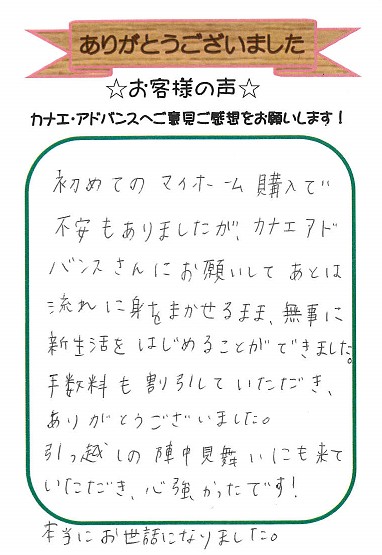 ありがとうございました
☆お客様の声☆
カナエ・アドバンスへご意見ご感想をお願いします！
初めての マイホーム 購入で
不安もありましたが、カナエアド
バンスさんに お願いして あとは
流れに身をまかせるまま、無事に
新生活を はじめることができました。
手数料も 割引して いただき、
ありがとうございました。
引っ越しの 陣中見舞いにも来て
いただき、心強かったです！
本当に お世話になりました。